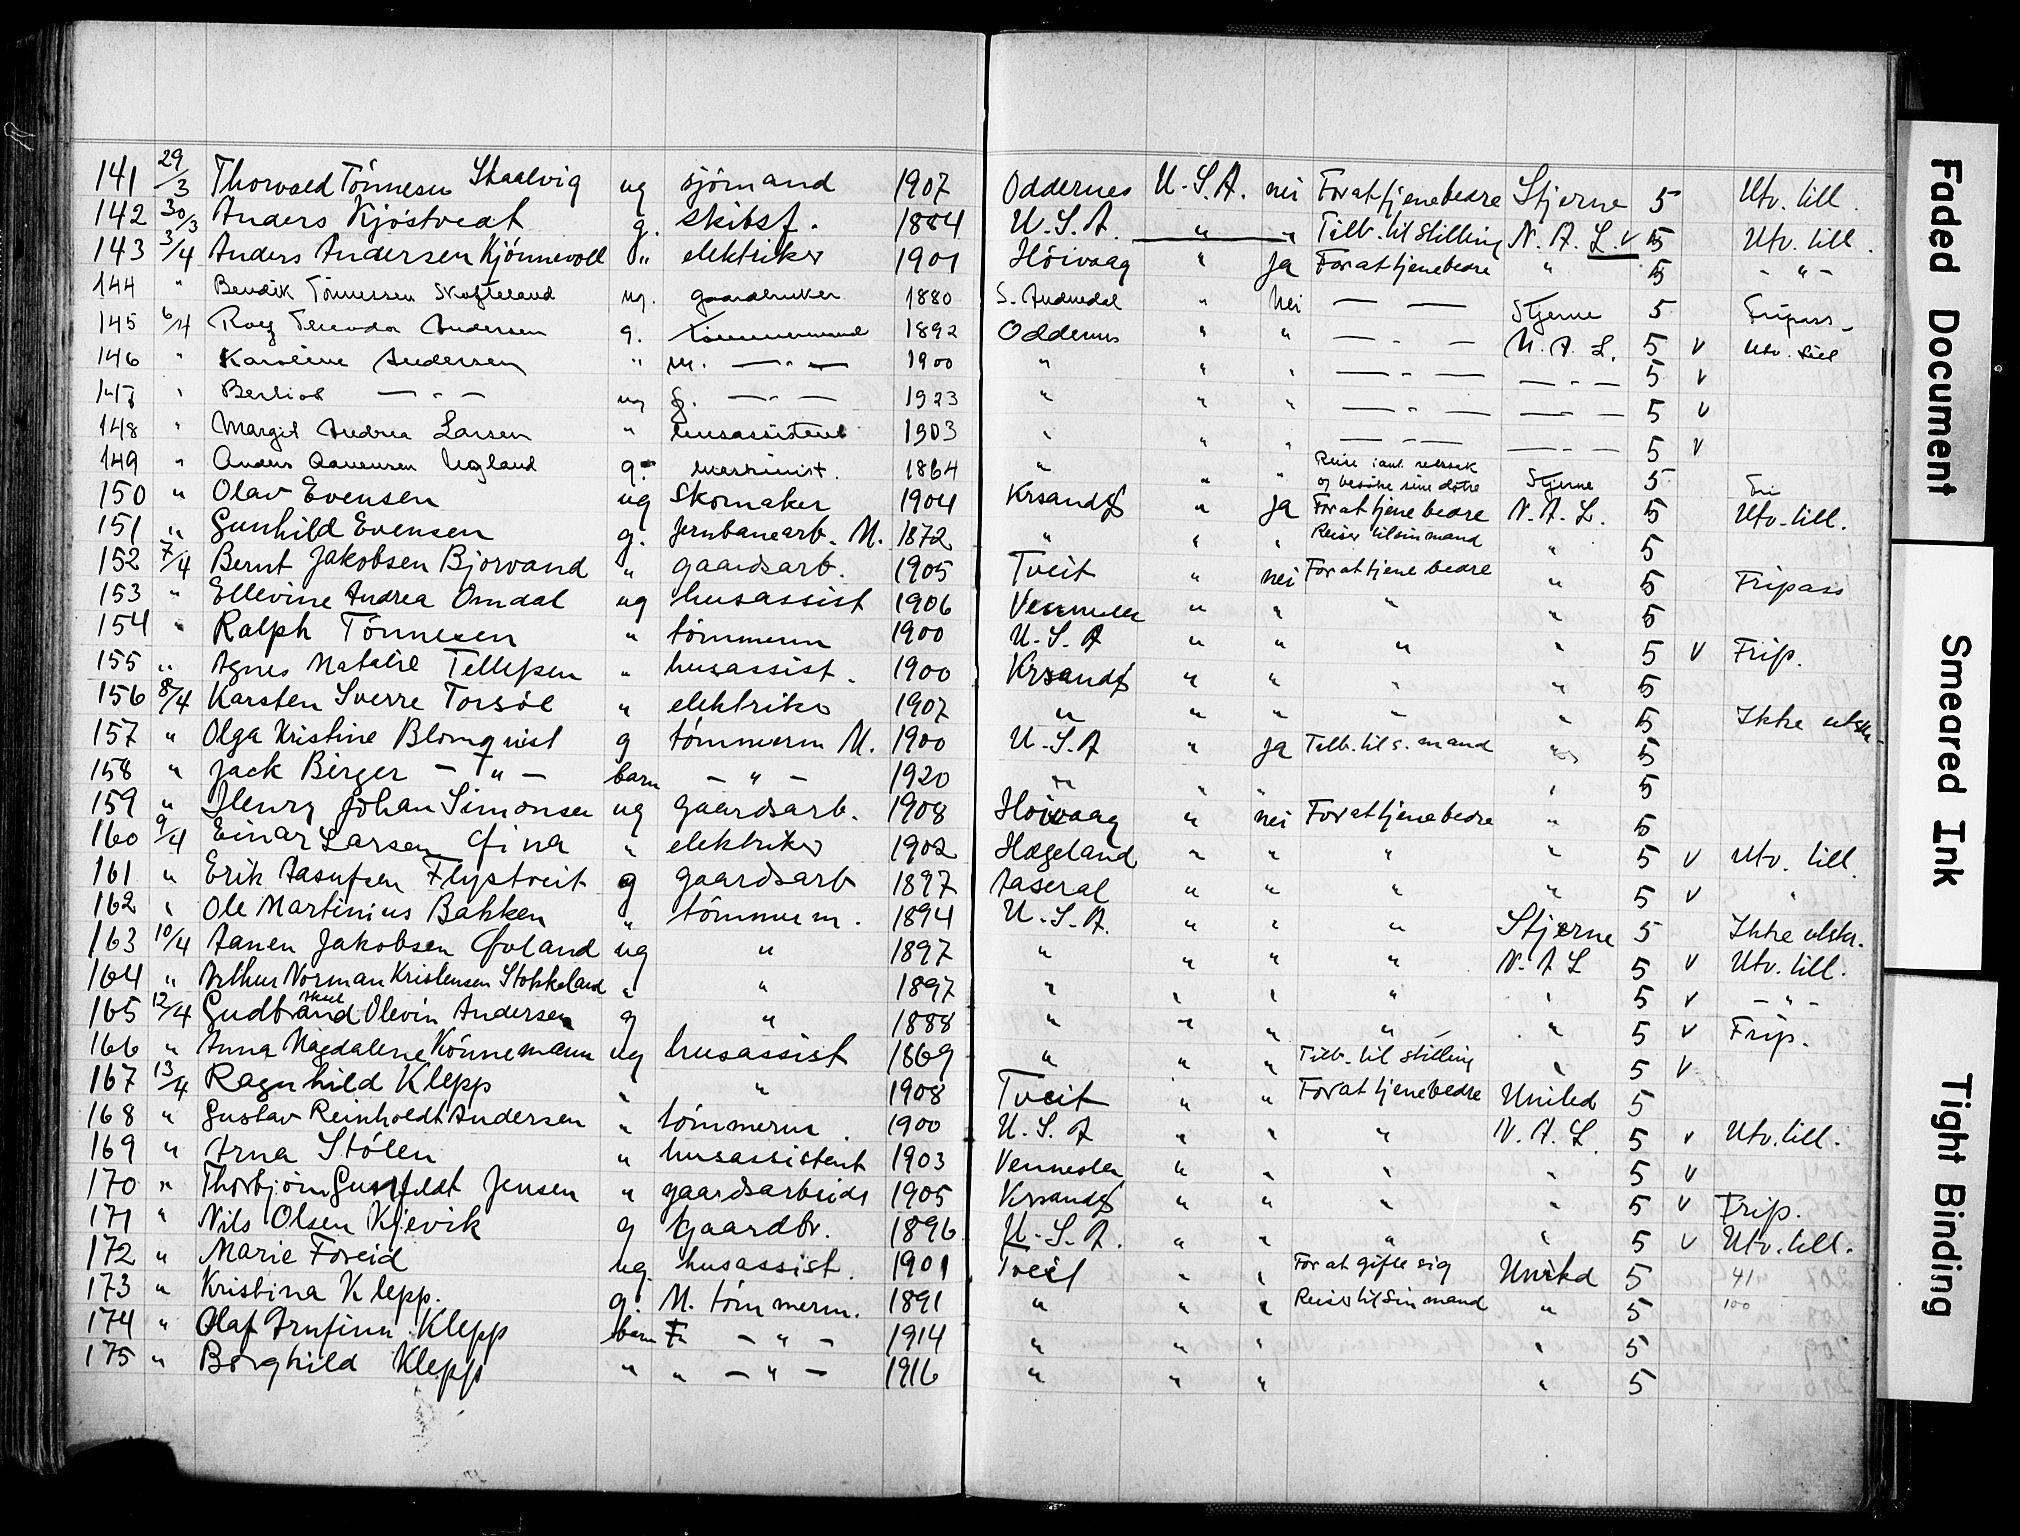 141 29/3 Thorvald Tönnesen Skaalvig ug sjömand 1907 Oddernes U.S.A. nei For at tjene bedre Stjerne 5 Utv. till.
142 30/3 Anders Kjöstvedt g. skibsf. 1884 U.S.A. " " Tilb. til stilling N.A.L. v 5 Utv. till.
143 3/4 Anders Andersen Kjönnevoll " elektriker 1901 Höivaag " ja For at tjene bedre " 5 - " -
144 " Bendik Tönnessen Skofteland ug. gaardbruker 1880 S. Audnedal " nei — — Stjerne 5 Fripass
145 6/4 Andersen g. tömmermand 1892 Oddernes " " — " — N.A.L. 5 v Utv. till
146 " Karoline Andersen " m. — " — 1900 " " " — " — — " — 5 v
147 " — " — ug f. — " — 1923 " " " — " — — " — 5 v
148 " Margit Andrea Larsen " husassistent 1903 " " " — — — — " — 5 v
149 " Anders Aanensen Ugland g. maskinist. 1864 " " " Reise og besöke sine dötre Stjerne 5 Fri
150 " Olav Evensen ug Skomaker 1904 Krsandf " ja For at tjene bedre N.A.L. 5 Utv. till.
151 " Gunhild Evensen g. Jernbanearb. M. 1872 " " " Reiser til sin mand " 5
152 7/4 Bernt Jakobsen Björvand " gaardsarb. 1905 Tveit " nei For at tjene bedre " 5 Fripass
153 " Ellevine Andrea Omdal ug husassist 1906 Vennesla " " " " 5
154 " Ralph Tönnesen " tömmerm 1900 U.S.A " " " " 5 v Frip.
155 " Agnes Natalie Tellefsen " husassist. 1900 Krsandf " " " " 5
156 8/4 Karsten Sverre Torsöe " elektriker 1907 " " " " " 5 Ikke utstr.
157 " Olga Kristine Blomqvist g tömmerm M. 1900 U.S.A " ja Tilb. til s. mand " 5
158 " Jack Birger - " - barn - " - 1920 " " " " 5
159 " Henry Johan Simonsen ug gaardsarb. 1908 Höivaag " nei For at tjene bedre " 5
160 9/4 Einar Larsen Gina " elektriker 1902 Hægeland " " " " 5 v Utv. till.
161 " Erik Aasufsen Flystveit g gaardsarb 1897 Aaseral " " " " 5 v "
162 " Ole Martinius Bakken " tömmerm. 1894 U.S.A. " " " Stjerne 5 Ikke utstr.
163 10/4 Aanen Jakobsen Övland ug " 1897 " " " " N.A.L 5 v Utv. till.
164 " Arthur Norman Kristensen Stokkeland " " 1897 " " " " " 5 v - " -
165 12/4 Gudbrand Olevin Andersen g " 1888 " " " " " 5 v Frip.
166 " Anna Magdalene Könnemann ug husassist 1869 " " " Tilb. til stilling " 5 v
167 13/4 Ragnhild Klepp " " 1908 Tveit " " For at tjene bedre United 5
168 " Gustav Reinholdt Andersen " tömmerm. 1900 U.S.A " " " N.A.L. 5 v Utv. till.
169 " Arna Stölen " husassistent 1903 Vennesla " " " " 5 v
170 " Thorbjörn Gunfeldt Jensen " gaardsarbeider 1905 Krsandf " " " " 5 v Frip.
171 " Nils Olsen Kjevik g gaardbr. 1896 U.S.A. " " " " 5 v Utv. till.
172 " Marie Foreid ug. husassist. 1901 Tveit " " For at gifte sig United 5 41
173 " Kristina Klepp. g. M. tömmerm. 1891 " " " Reiser til sin mand " 5 100
174 " Olaf Arnfinn Klepp barn F - " - 1914 " " " " 5
175 " Borghild Klepp " " - " - 1916 " " " " 5
Faded Document
Smeared Ink
Tight Binding